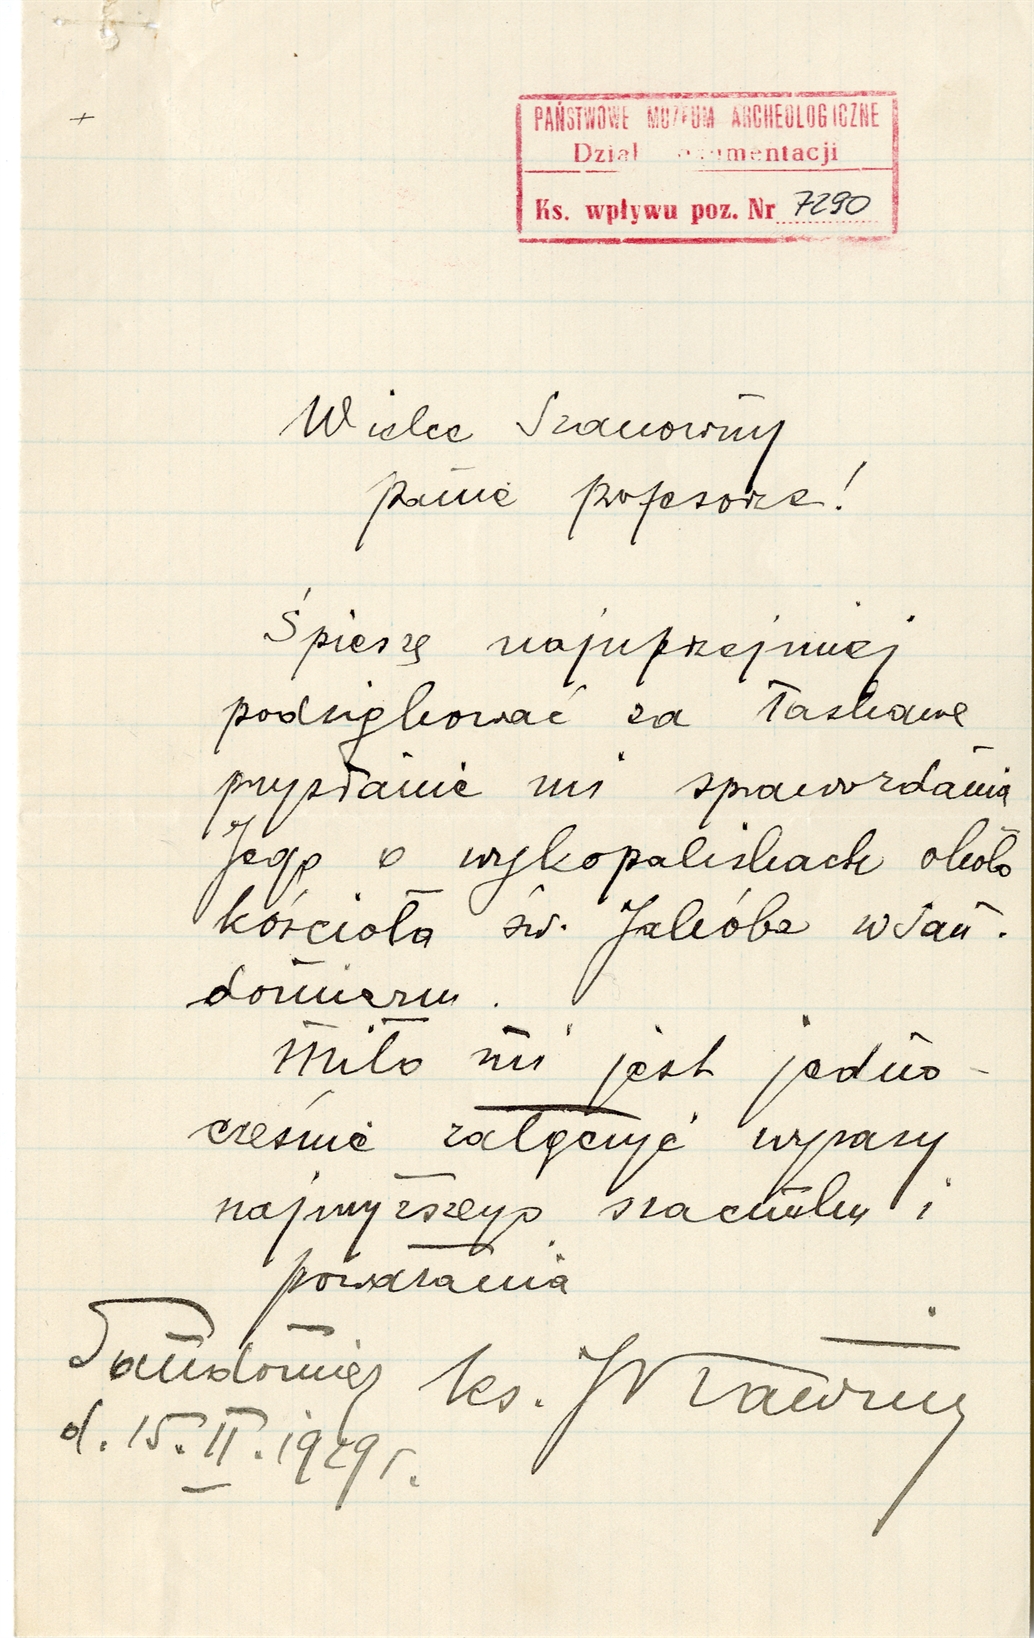 PAŃSTWOWE MUZEUM ARCHEOLOGICZNE
Dział Dokumentacji
Ks. wpływu poz. Nr 7290
Wielce Szanowny
panie profesorze!
Śpieszę najuprzejmiej
podziękować za łaskawe
przysłanie mi sprawozdania
Jego o wykopaliskach około
kościoła św. Jakóba w San-
domierzu.
Miło mi jest jedno-
cześnie załączyć wyrazy
najwyższego szacunku i
poważania
Sandomierz ks.
d. 15. II. 1929 r.